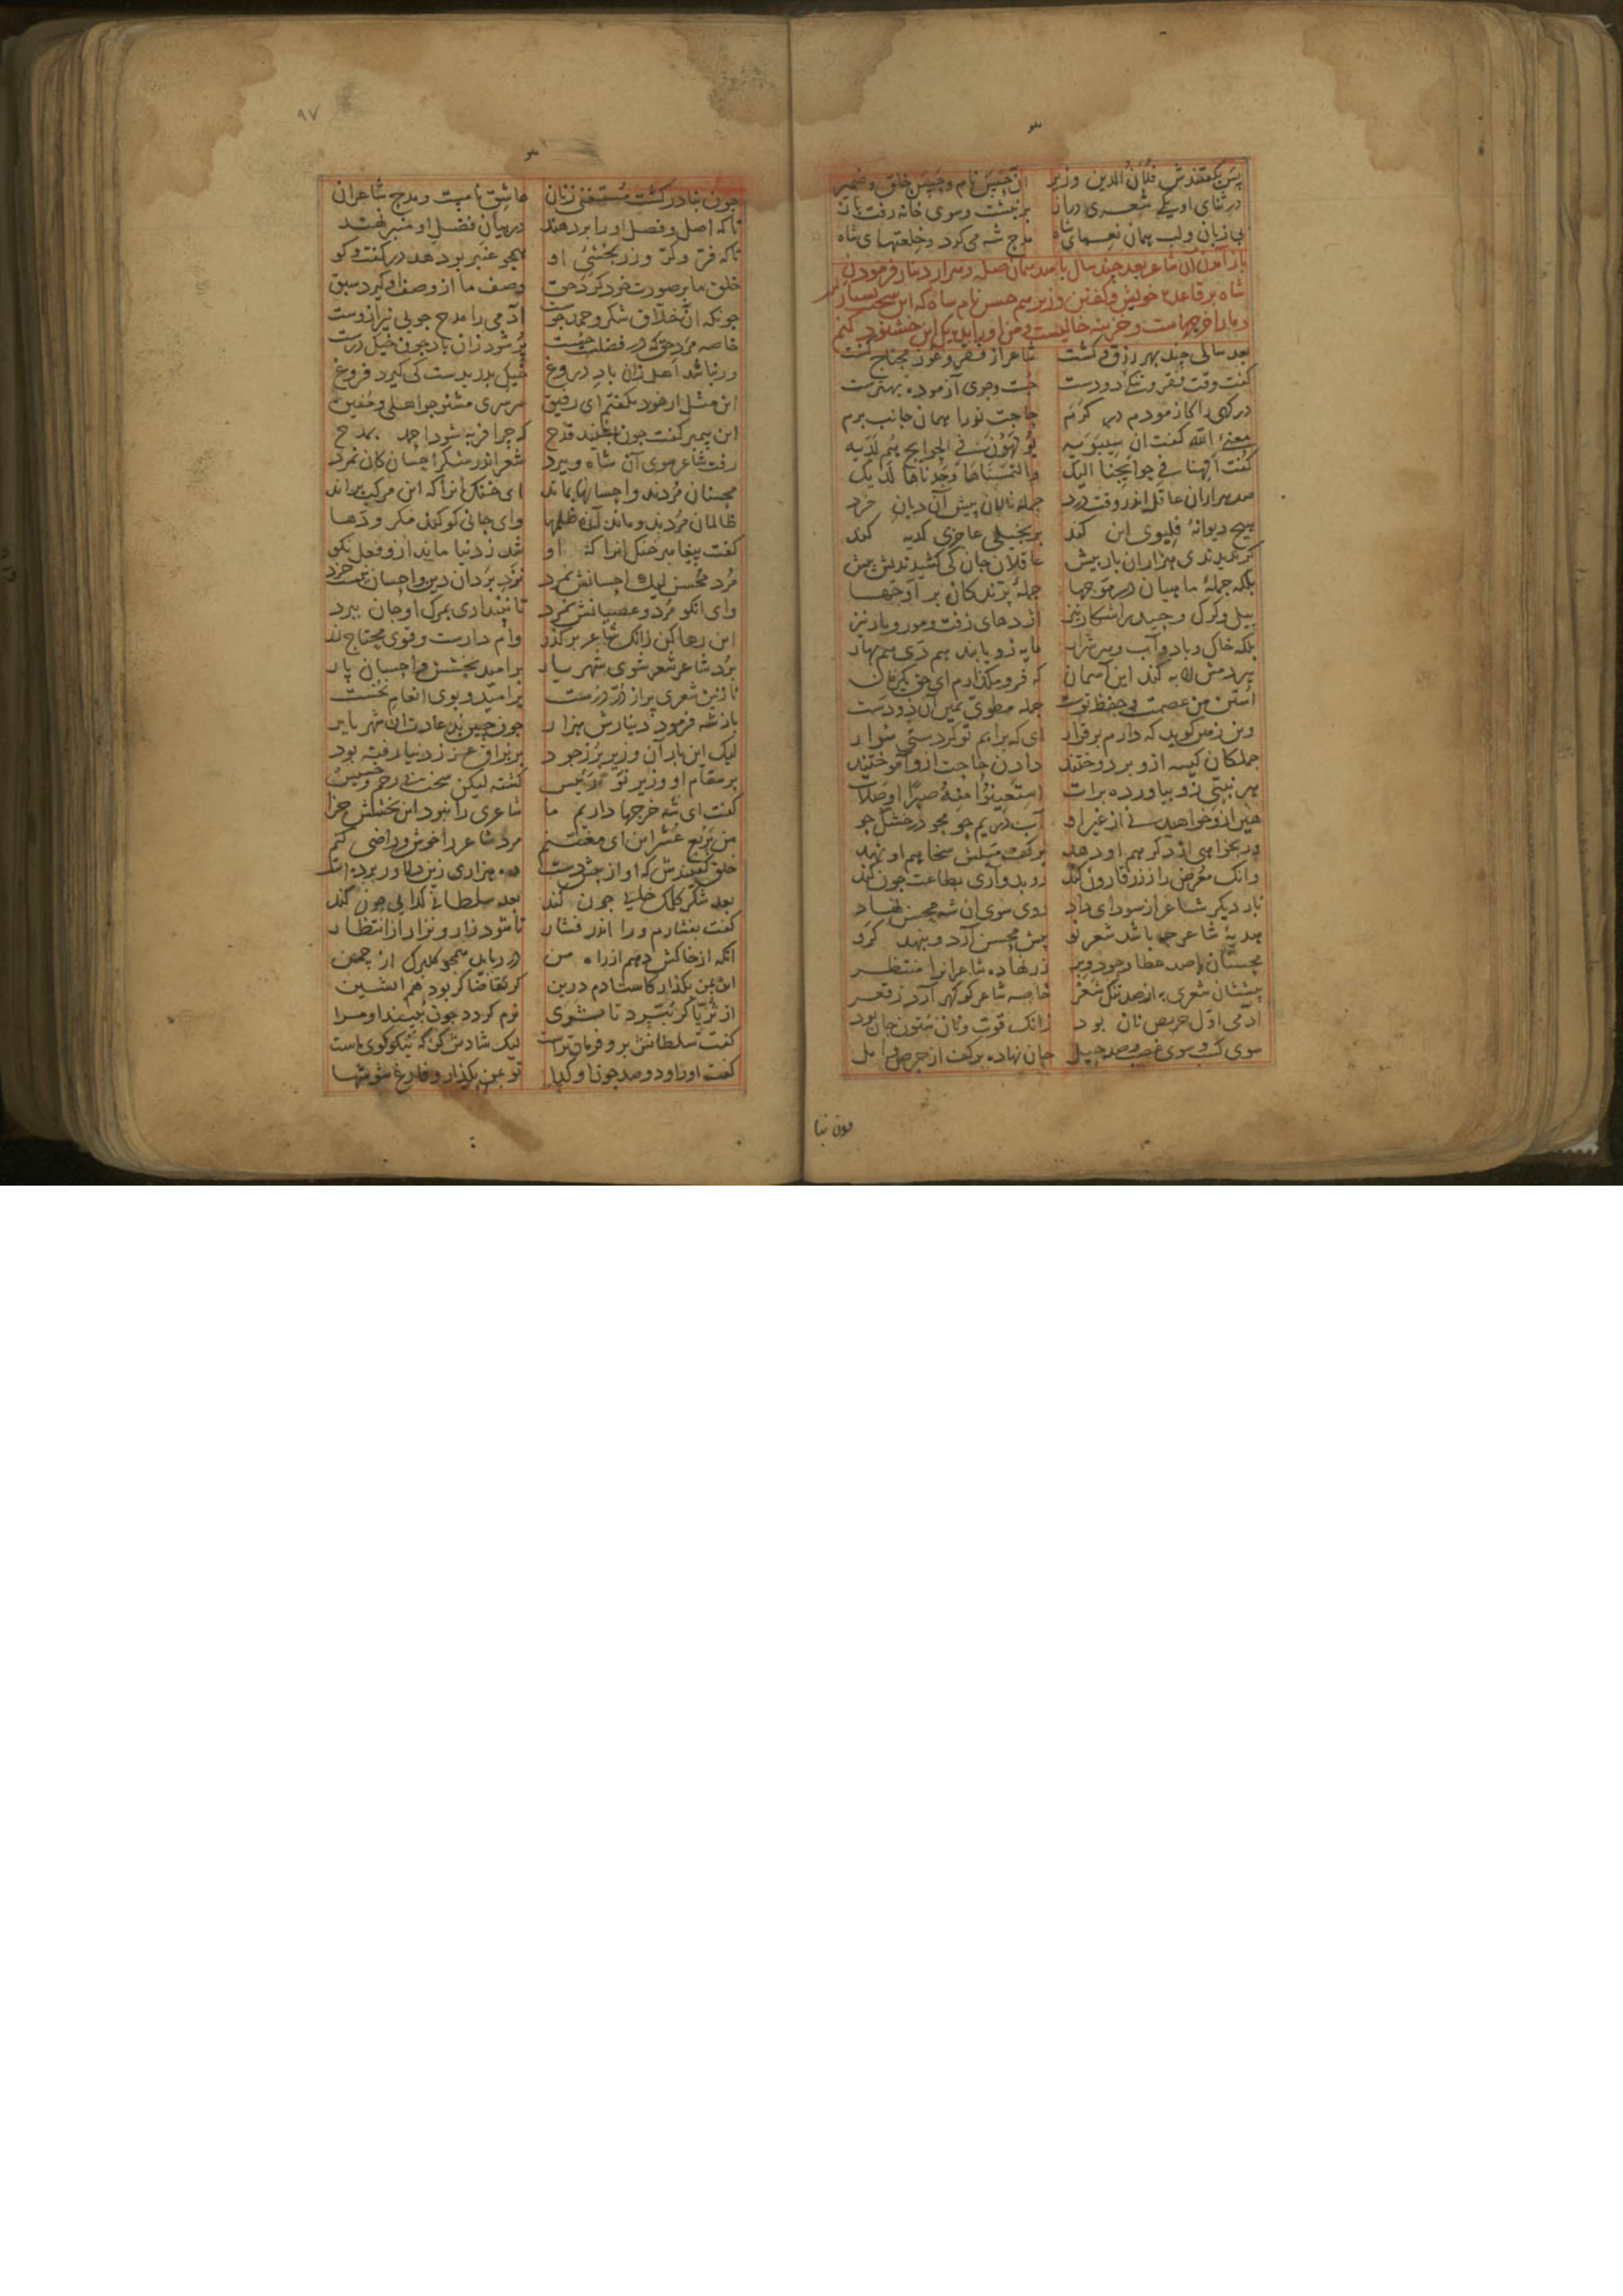 پس بگفتندش فلان الدین وزیر آن حسن نام و حسن خلق و ضمیر
در ثنای او یکی شعری دراز بر نبشت و سوی خانه رفت باز
بی زبان و لب همان نعمای شاه مدح شه می کرد و خلعتهای شاه
باز آمدن آن شاعر بعد چند سال بامید همان صله و هزار دینار فرمودن
شاه بر قاعده خویش و گفتن وزیر هم حسن نام شاه را که این سخت بسیار
و ما را خرجهاست و خزینه خالیست و من او را بده یک این خشنود کنم
بعد سالی چند بهر رزق و کشت شاعر از فقر و عوز محتاج گشت
گفت وقت فقر و تنگی دو دست جست و جوی آزموده بهترست
درگهی را کازمودم در کرم حاجت نو را همان جانب برم
معنئ الله گفت آن سیبویه یولهون فی الحوایج هم لدیه
گفت الهنا فی حوایجنا الیک والتمسناها وجدناها لدیک
صد هزاران عاقل اندر وقت درد جمله نالان پیش آن دیان فرد
هیچ دیوانهٔ فلیوی این کند بر بخیلی عاجزی کدیه کند
گر ندیدندی هزاران بار بیش عاقلان جان کی کشیدندیش پیش
بلکه جملهٔ ماهیان در موجها جملهٔ پرندگان بر اوجها
پیل و گرگ و حیدر اشکار نیز اژدهای زفت و مور و مار نیز
بلکه خاک و باد و آب و هر شرار مایه زو یابند هم دی هم بهار
هر دمش لابه کند این آسمان که فرو مگذارم ای حق یک زمان
استن من عصمت و حفظ توست جمله مطوی یمین آن دو دست
وین زمین گوید که دارم برقرار ای که بر آبم تو کردستی سوار
جملگان کیسه ازو بر دوختند دادن حاجت ازو آموختند
هر نبیی زو بیاورده برات استعینوا منه صبرا او صلات
هین ازو خواهید نی از غیر او آب در یم جو مجو در خشک جو
ور بخواهی از دگر هم او دهد بر کف میلش سخا هم او نهد
وانک معرض را ز زر قارون کند رو بدو آری بطاعت چون کند
بار دیگر شاعر از سودای داد روی سوی آن شه محسن نهاد
هدیهٔ شاعر چه باشد شعر نو پیش محسن آرد و بنهد گرو
محسنان با صد عطا و جود و بر زر نهاده شاعران را منتظر
پیششان شعری به از صد تنگ شعر خاصه شاعر کو گهر آرد ز قعر
آدمی اول حریص نان بود زانک قوت و نان ستون جان بود
سوی کسب و سوی غصب و صد حیل جان نهاده بر کف از حرص و امل
چون بنا
۹۷
چون بنادر گشت مستغنی ز نان عاشق نامست و مدح شاعران
تا که اصل و فصل او را بر دهند در بیان فضل او منبر نهند
تا که فر و کر و زر بخشئ او همچو عنبر بو دهد در گفت و گو
خلق ما بر صورت خود کرد حق وصف ما از وصف او گیرد سبق
چونکه آن خلاق شکر و حمد جوست آدمی را مدح جویی نیز ازوست
خاصه مرد حق که در فضلست چست پر شود زان باد چون خیک درست
ور نباشد اهل زان باد دروغ خیک بدریدست کی گیرد فروغ
این مثل از خود نگفتم ای رفیق سرسری مشنو چو اهلی و مفیق
این پیمبر گفت چون بشنید قدح که چرا فربه شود احمد بمدح
رفت شاعر سوی آن شاه و ببرد شعر اندر شکر احسان کان نمرد
محسنان مردند و احسانها بماند ای خنک آنرا که این مرکب براند
ظالمان مردند و ماند آن ظلمها وای جانی کو کند مکر و دها
گفت پیغامبر خنک آنرا که او شد ز دنیا ماند ازو فعل نکو
مرد محسن لیک احسانش نمرد نزد یزدان دین و احسان نیست خرد
وای آنکو مرد و عصیانش نمرد تا نپنداری بمرگ او جان ببرد
این رها کن زانک شاعر بر گذر وام دارست و قوی محتاج زر
برد شاعر شعر سوی شهریار بر امید بخشش و احسان پار
نازنین شعری پر از در درست بر امید و بوی انعام نخست
باز شه فرمود دینارش هزار چون چنین بد عادت آن شهریار
لیک این بار آن وزیر پر ز جود بر براق عز ز دنیا رفته بود
بر مقام او وزیر نو رئیس گشته لیکن سخت بی رحم و خسیس
گفت ای شه خرجها داریم ما شاعری را نبود این بخشش جزا
من بربع عشر این ای مغتنم مرد شاعر را خوش و راضی کنم
خلق گفتندش که او از پیش دست ده هزاری زین دلاور برده است
بعد شکر کلک خایی چون کند بعد سلطانی گدایی چون کند
گفت بفشارم ورا اندر فشار تا شود زار و نزار از انتظار
آنگه ار خاکش دهم از راه من در رباید همچو گلبرگ از چمن
این بمن بگذار کاستادم درین گر تقاضاگر بود هم آتشین
از ثریا گر بپرد تا ثری نرم گردد چون ببیند او مرا
گفت سلطانش برو فرمان تراست لیک شادش کن که نیکوگوی ماست
گفت او را و دو صد چون او گدا تو بمن بگذار و فارغ شو شها